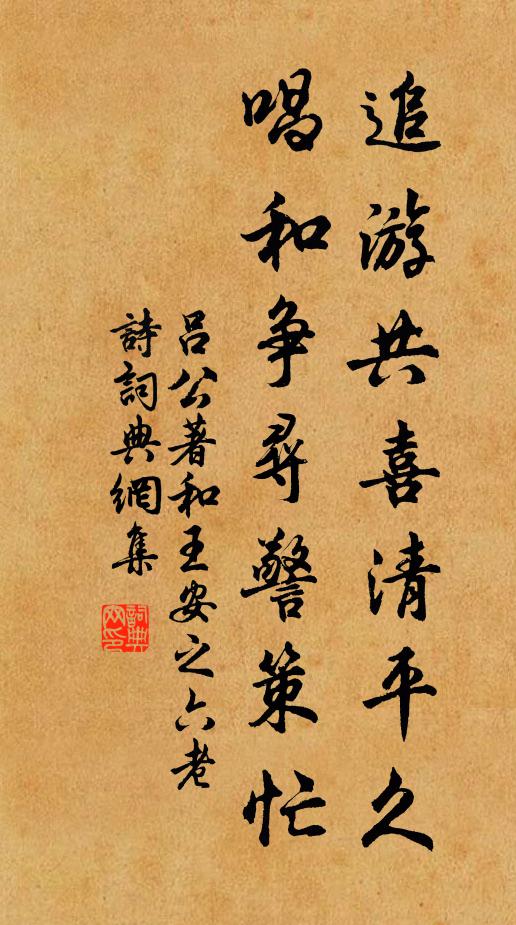 追游共喜清平久
唱和争尋警策忙
吕公著和王安之六老
詩詞典網集
詞典
网印